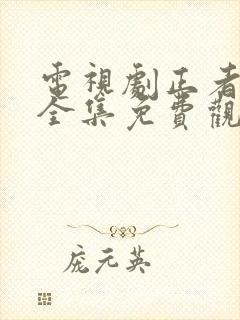 電視劇正者
全集免費觀
庞元英